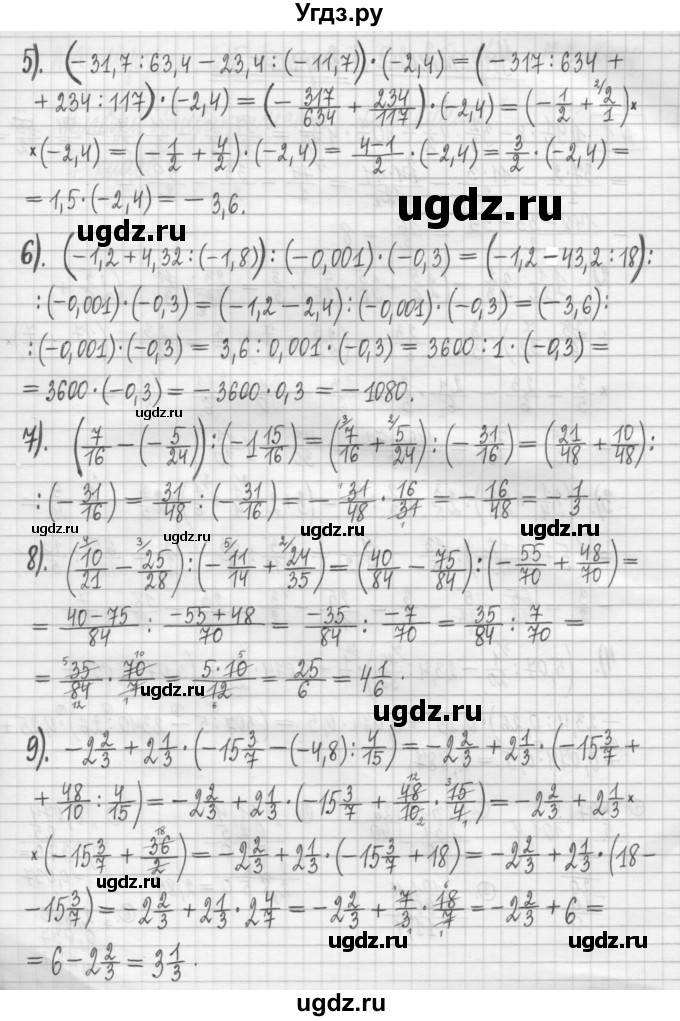 Угдз.ру
5). (-31,7 : 63,4 - 23,4 : (-11,7)) · (-2,4) = (-317 : 634 +
+ 234 : 117) · (-2,4) = (-317/634 + 234/117) · (-2,4) = (-1/2 + ²⁾2/1) ×
× (-2,4) = (-1/2 + 4/2) · (-2,4) = (4-1)/2 · (-2,4) = 3/2 · (-2,4) =
= 1,5 · (-2,4) = -3,6.
ugdz.ru
ugdz.ru
6). (-1,2 + 4,32 : (-1,8)) : (-0,001) · (-0,3) = (-1,2 - 43,2 : 18) :
: (-0,001) · (-0,3) = (-1,2 - 2,4) : (-0,001) · (-0,3) = (-3,6) :
: (-0,001) · (-0,3) = 3,6 : 0,001 · (-0,3) = 3600 : 1 · (-0,3) =
= 3600 · (-0,3) = -3600 · 0,3 = -1080.
ugdz.ru
7). (7/16 - (-5/24)) : (-1 15/16) = (³⁾7/16 + ²⁾5/24) : (-31/16) = (21/48 + 10/48) :
: (-31/16) = 31/48 : (-31/16) = -31/48 · 16/31 = -16/48 = -1/3.
ugdz.ru
ugdz.ru
ugdz.ru
8). (⁴⁾10/21 - ³⁾25/28) : (-⁵⁾11/14 + ²⁾24/35) = (40/84 - 75/84) : (-55/70 + 48/70) =
= (40-75)/84 : (-55+48)/70 = -35/84 : -7/70 = 35/84 : 7/70 =
= 35/84 · 70/7 = 5·10/12 = 25/6 = 4 1/6.
ugdz.ru
ugdz.ru
9). -2 2/3 + 2 1/3 · (-15 3/7 - (-4,8) : 4/15) = -2 2/3 + 2 1/3 · (-15 3/7 +
+ 48/10 : 4/15) = -2 2/3 + 2 1/3 · (-15 3/7 + 48/10 · 15/4) = -2 2/3 + 2 1/3 ×
× (-15 3/7 + 36/2) = -2 2/3 + 2 1/3 · (-15 3/7 + 18) = -2 2/3 + 2 1/3 · (18 -
ugdz.ru
- 15 3/7) = -2 2/3 + 2 1/3 · 2 4/7 = -2 2/3 + 7/3 · 18/7 = -2 2/3 + 6 =
ugdz.ru
ugdz.ru
= 6 - 2 2/3 = 3 1/3.
ugdz.ru